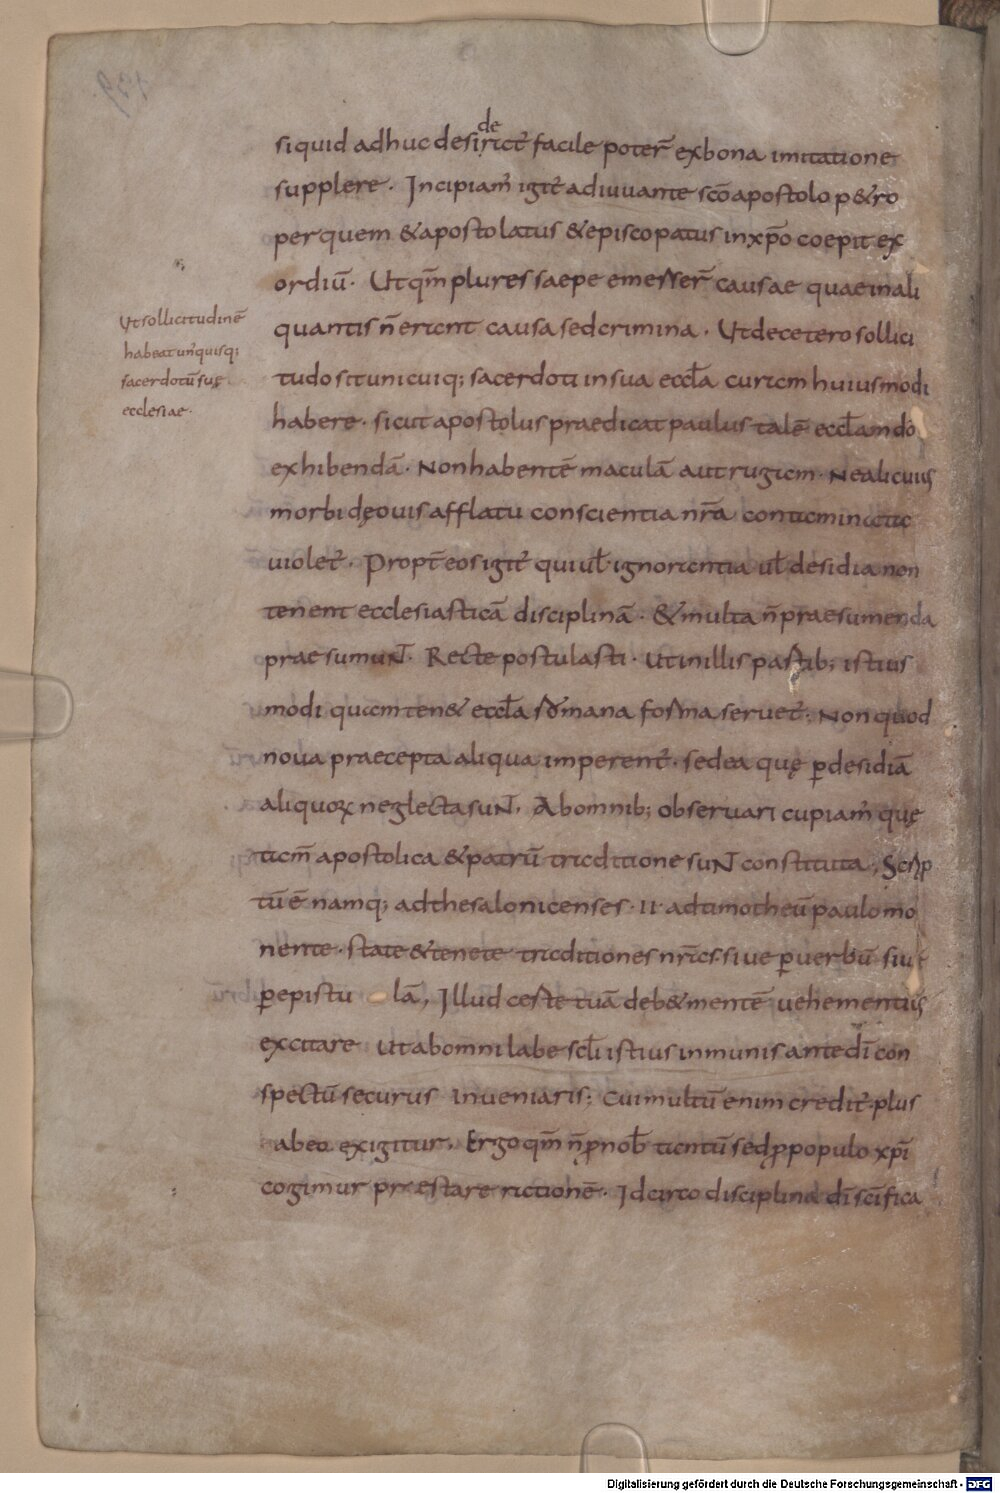 de
siquid adhuc desiret̄ facile poter̄ exbona imitatione
supplere. Incipiam̄ igit̄ adiuuante sc̄o apostolo p&ro
per quem &apostolatus &episcopatus inxp̄o coepit ex
ordiū. Ut qm̄ plures saepe emesser̄ causae quae inali
quantis n̄ erant causa sed crimina. Ut decetero sollici
tudo sit unicuiq; sacerdoti in sua eccl̄a curam huiusmodi
habere. sicut apostolus praedicat paulus talē eccl̄am dō
exhibendā. Non habentē maculā aut rugam. Ne alicuius
morbidę ouis afflatu conscientia nr̄a contaminata
uiolet̄. Propt̄ eos igit̄ qui ul̄ ignorantia ul̄ desidia non
tenent ecclesiasticā disciplinā. & multa n̄ praesumenda
praesumuNT. Recte postulasti. Ut in illis partib; istius
modi quam ten& eccl̄a romana forma seruet̄. Non quod
noua praecepta aliqua imperent̄. sed ea quę ꝑdesidiā
aliquoꝝ neglecta suNT. Ab omnib; obseruari cupiam̄ quę
tam̄ apostolica &patrū traditione suNT constituta, Scrip
tū ē namq; ad thesalonicenses. II. ad timotheū paulo mo
nente. state &tenete traditiones nr̄as. siue ꝑuerbū siue
ꝑepistu lā, Illud certe tuā deb& mentē uehementius
excitare Ut ab omni labe scl̄i istius inmunis ante dī con
spectū securus inueniaris; Cui multū enim credit̄. plus
abeo exigitur. Ergo qm̄ n̄ ꝓ nob̄ tantū sed ꝓ populo xp̄i
cogimur praestare rationē. Idcirco disciplina dī sc̄ifica
Ut sollicitudinē
habeat un̄quisq;
sacerdotū suę
ecclesiae.
Digitalisierung gefördert durch die Deutsche Forschungsgemeinschaft - DFG